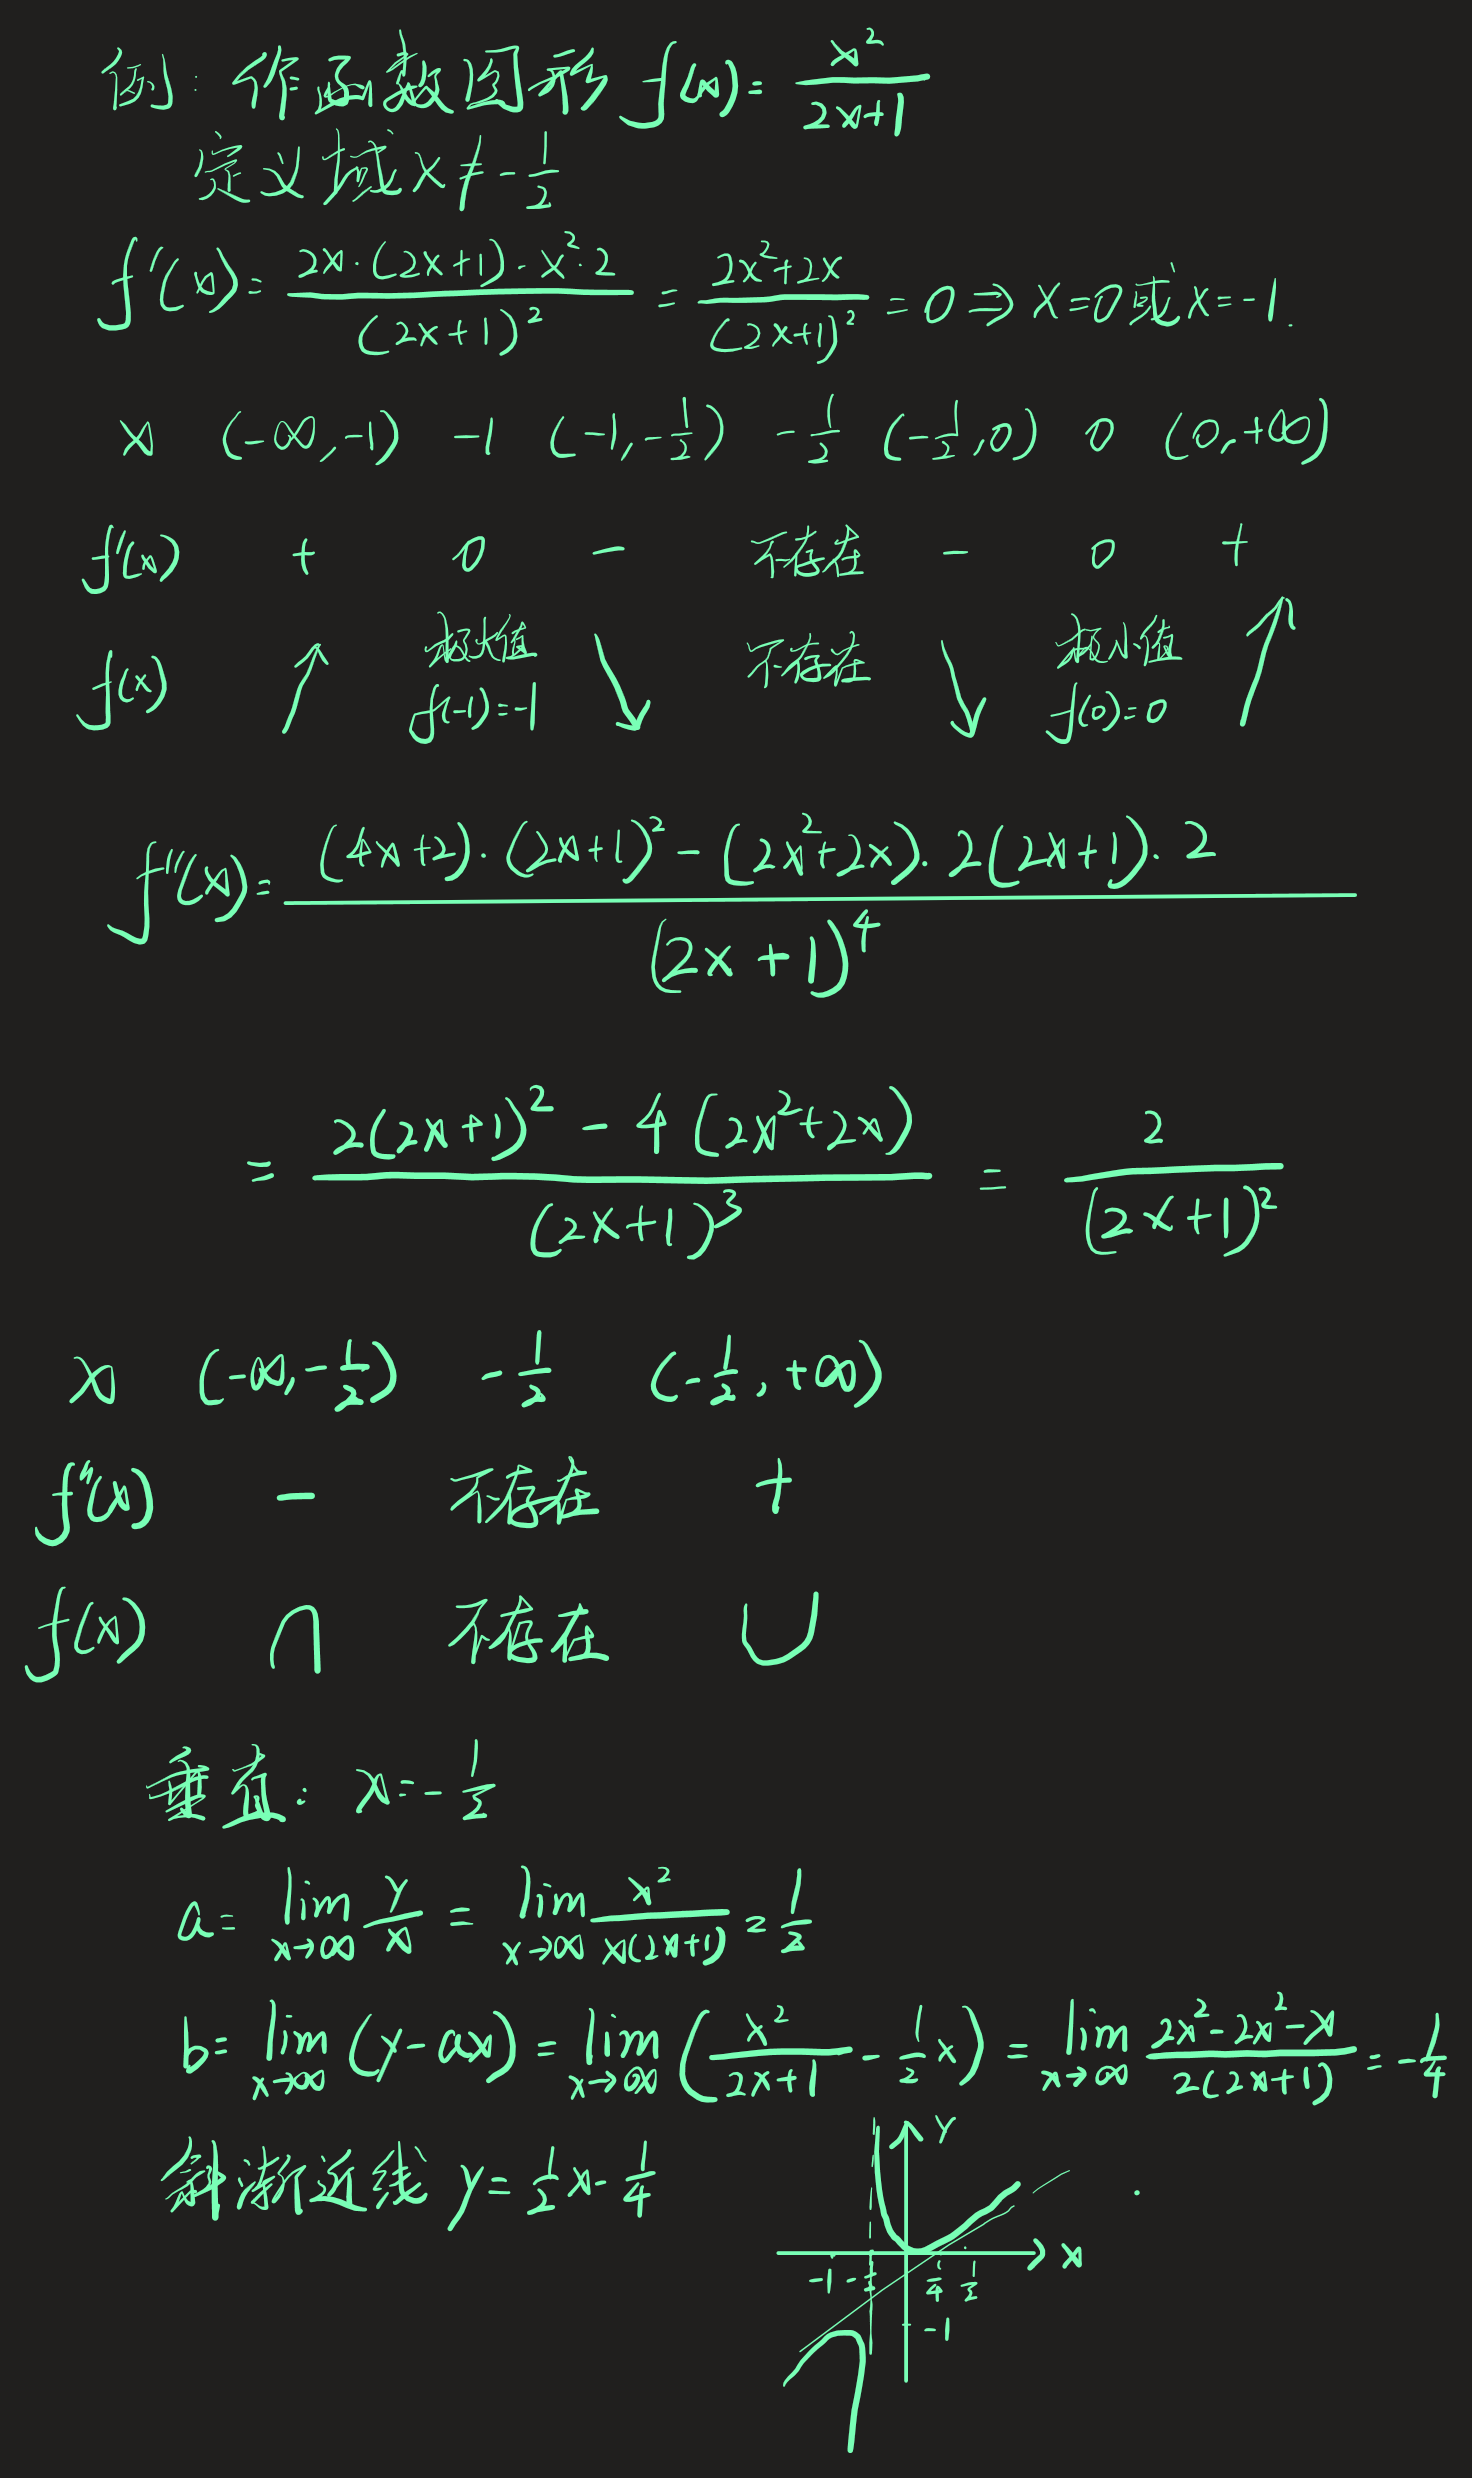 例: 作函数图形 f(x)= x²/(2x+1)
定义域 x≠-1/2
f'(x)= (2x·(2x+1)-x²·2)/(2x+1)² = (2x²+2x)/(2x+1)² =0 ⇒ x=0或x=-1.
x (-∞,-1) -1 (-1,-1/2) -1/2 (-1/2,0) 0 (0,+∞)
f'(x) + 0 - 不存在 - 0 +
f(x) ↗ 极大值 f(-1)=-1 ↘ 不存在 ↘ 极小值 f(0)=0 ↗
f''(x)= ((4x+2)·(2x+1)²-(2x²+2x)·2(2x+1)·2)/(2x+1)⁴
= (2(2x+1)²-4(2x²+2x))/(2x+1)³ = 2/(2x+1)²
x (-∞,-1/2) -1/2 (-1/2,+∞)
f''(x) - 不存在 +
f(x) ∩ 不存在 ∪
垂直: x=-1/2
a= lim x→∞ y/x = lim x→∞ x²/(x(2x+1)) = 1/2
b= lim x→∞ (y-ax) = lim x→∞ (x²/(2x+1) - 1/2 x) = lim x→∞ (2x²-2x²-x)/(2(2x+1)) = -1/4
斜渐近线 y=1/2 x-1/4
y
x
-1 -1/2 1/4 1/2
-1